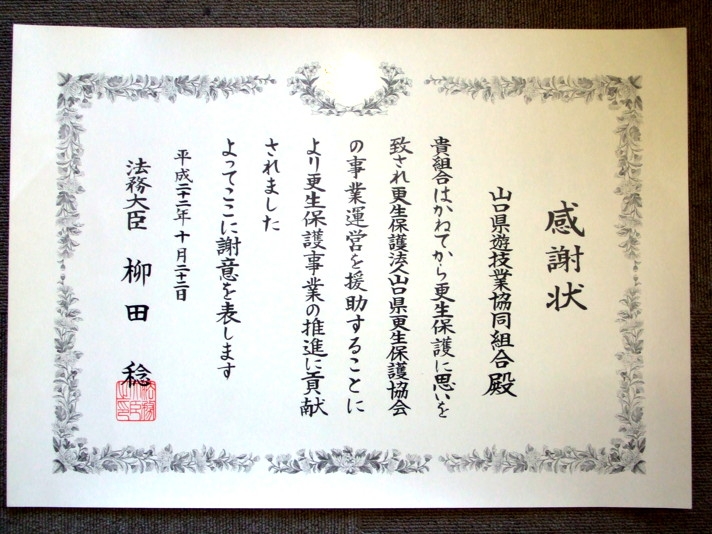 感謝状
山口県遊技業協同組合殿
貴組合はかねてから更生保護に思いを
致され更生保護法人山口県更生保護協会
の事業運営を援助することに
より更生保護事業の推進に貢献
されました
よってここに謝意を表します
平成二十二年十月二十二日
法務大臣 柳田 稔